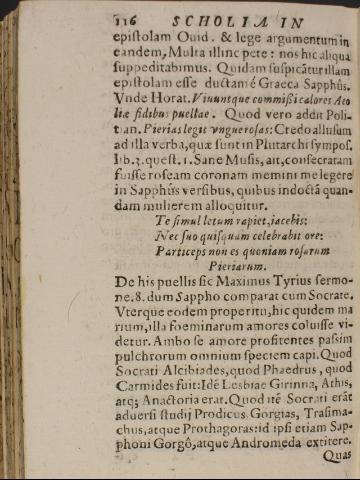 116 SCHOLIA IN
epistolam Ouid. & lege argumentum in
eandem, Multa illinc pete: nos hic aliqua
suppeditabimus. Quidam suspicātur illam
epistolam esse ductam é Graeca Sapphûs.
Vnde Horat. Viuuntque commißi calores Aeo
liæ fidibus puellae. Quod vero addit Poli-
tian. Pierias legit vngue rosas: Credo allusum
ad illa verba, quæ sunt in Plutarchi sympos.
lib. 3. quest. 1. Sane Musis, ait, consecratam
fuisse roseam coronam memini me legere
in Sapphûs versibus, quibus indoctā quan-
dam mulierem alloquitur.
Te simul letum rapiet, iacebis:
Nec suo quisquam celebrabit ore:
Particeps non es quoniam rosarum
Pieriarum.
De his puellis sic Maximus Tyrius sermo-
ne. 8. dum Sappho comparat cum Socrate.
Vterque eodem properitu, hic quidem ma
rium, illa foeminarum amores coluisse vi-
detur. Ambo se amore profitentes passim
pulchrorum omnium speciem capi. Quod
Socrati Alcibiades, quod Phaedrus, quod
Carmides fuit: Idē Lesbiae Girinna, Athis,
atq; Anactoria erat. Quod itē Socrati erāt
aduersi studij Prodicus Gorgias, Trasima-
chus, atque Prothagoras: id ipsi etiam Sap-
phoni Gorgô, atque Andromeda extitere.
Quas